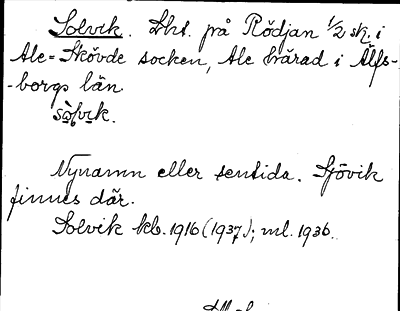 Solvik. Lht. på Rödjan 1/2 sk. i
Ale-Skövde socken, Ale härad i Älfs-
-borgs län.
sòlvik.
Nynamn eller sentida. Sjövik
finnes där.
Solvik kb. 1916 (1937); ml. 1936.